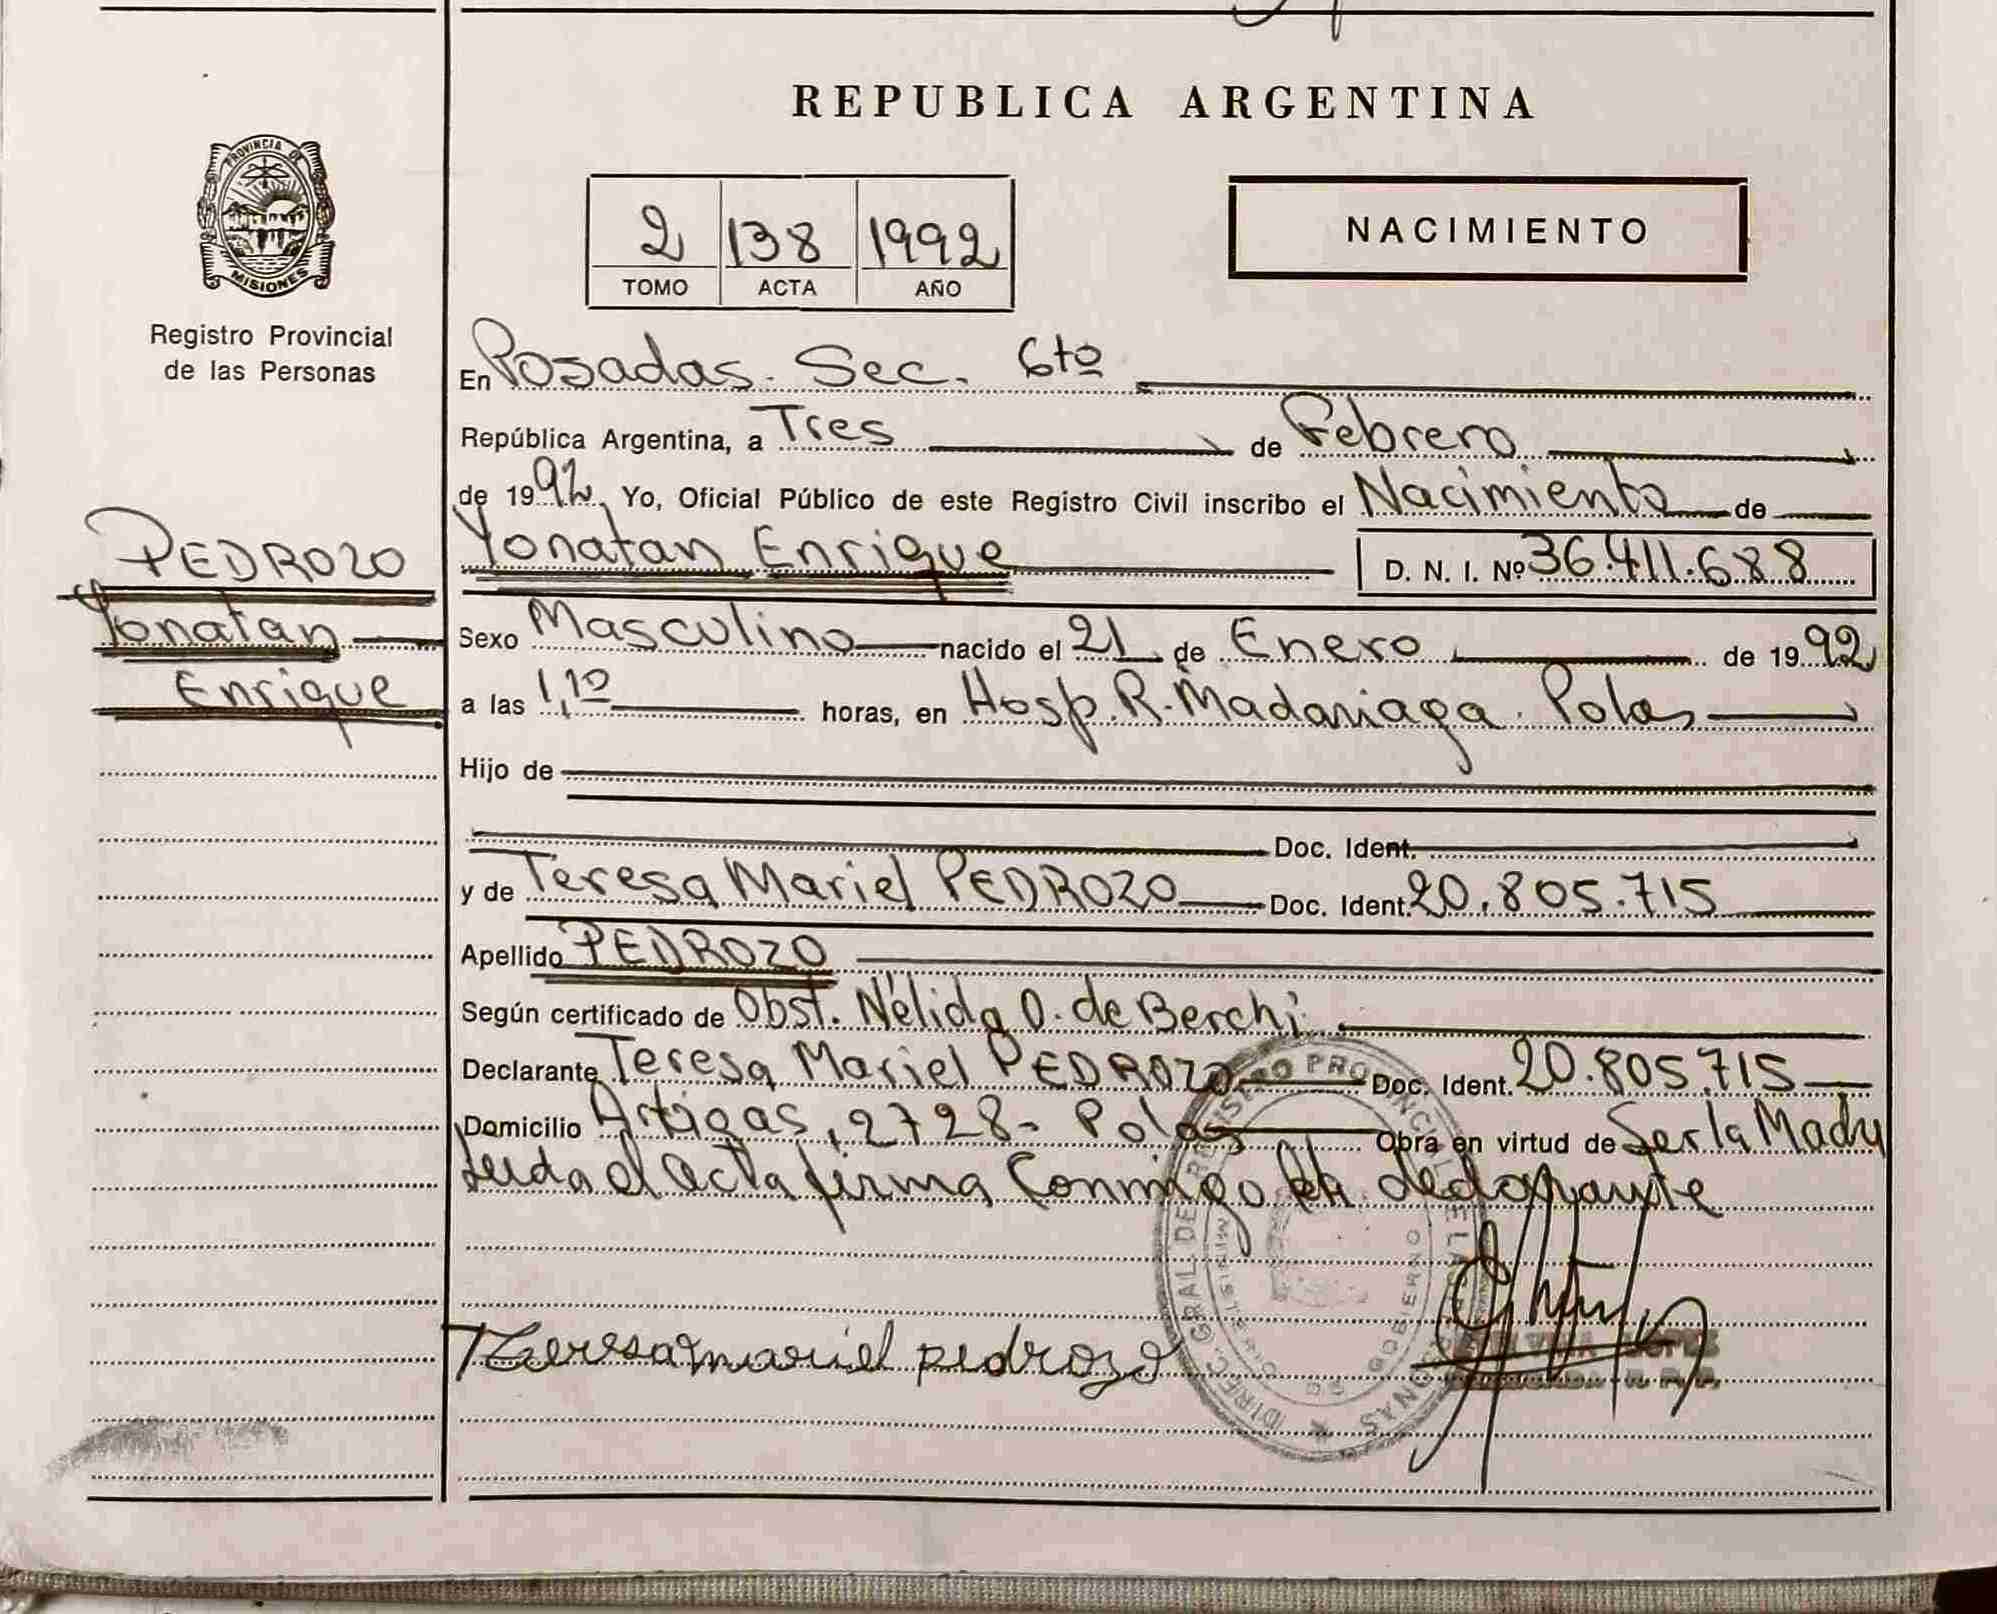 REPUBLICA ARGENTINA
PROVINCIA DE MISIONES
Registro Provincial
de las Personas
2 138 1992
TOMO ACTA AÑO
NACIMIENTO
En Posadas. Sec. 6to
República Argentina, a Tres de Febrero
de 1992, Yo, Oficial Público de este Registro Civil inscribo el Nacimiento de
PEDROZO
Yonatan
Enrique
Yonatan Enrique D. N. I. Nº 36.411.688
Sexo Masculino nacido el 21 de Enero de 1992
a las 1,10 horas, en Hosp. R. Madariaga. Pdas
Hijo de
Doc. Ident.
y de Teresa Mariel PEDROZO Doc. Ident. 20.805.715
Apellido PEDROZO
Según certificado de Obst. Nélida O. de Berchi
Declarante Teresa Mariel PEDROZO Doc. Ident. 20.805.715
Domicilio Artigas, 2728- Pdas Obra en virtud de Ser la Madre
Leida el acta firma Conmigo la declarante
Teresa mariel pedrozo
DIREC. GRAL DE REGISTRO PROVINCIAL DE LAS PERSONAS
MINISTERIO DE GOBIERNO